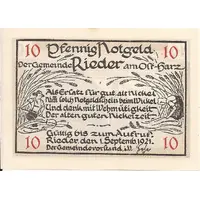 10 Pfennig Notgeld 10
Der Gemeinde Rieder am Ost-Harz
Als Ersatz für gut alt Nickel
solch Notgeldschein beim Wickel
Und denk mit Wehmütigkeit
Der alten guten Nickelzeit
Gültig bis zum Aufruf.
10 Rieder den 1. Septemb. 1921. 10
Der Gemeindevorstand